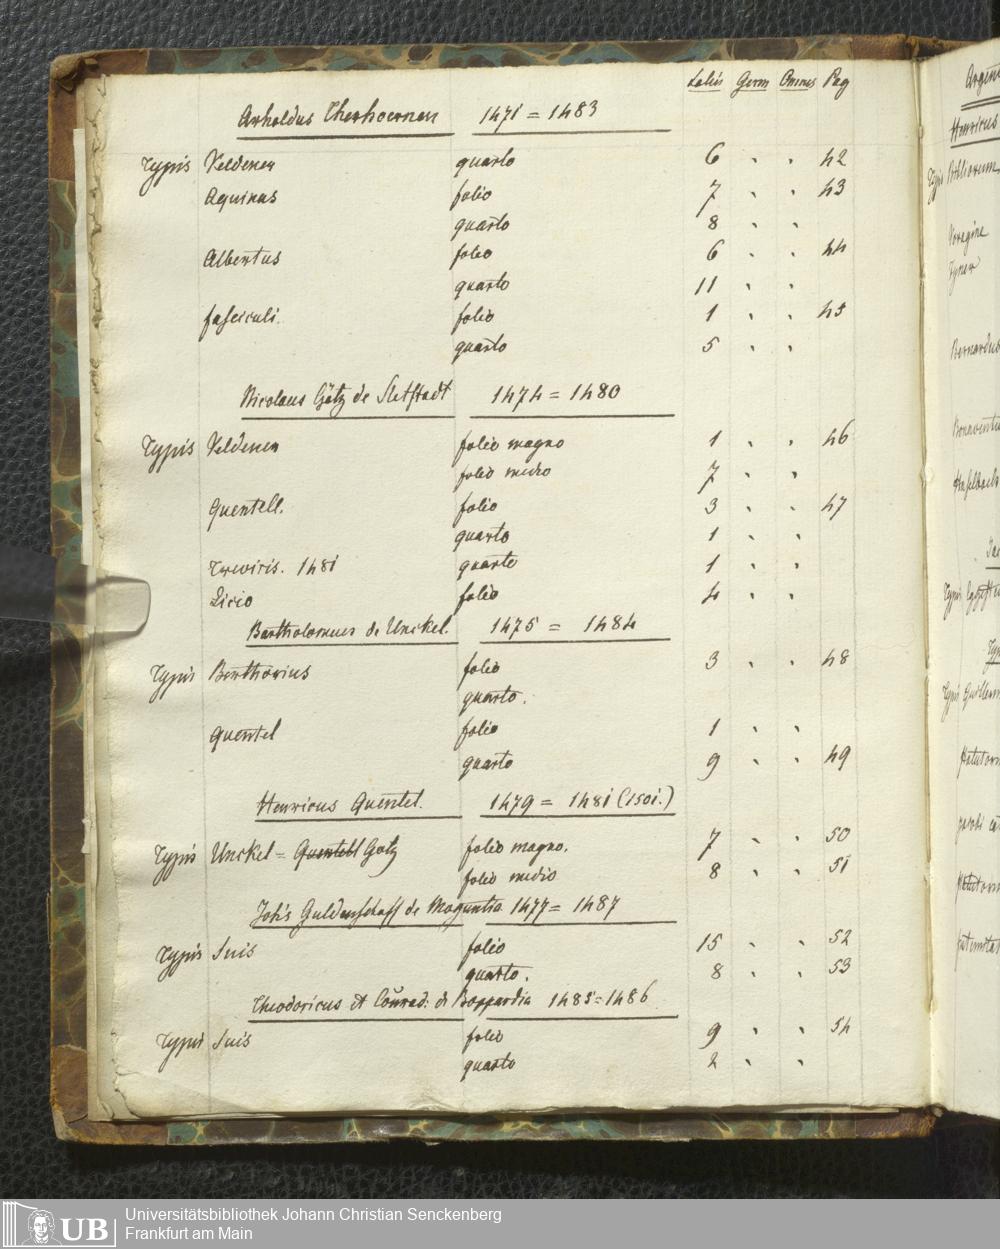 Latin Germ Omnes Pag
Arnoldus Therhoernen 1471 = 1483
Typis Veldener quarto 6 " " 42
Aquinas folio 7 " " 43
quarto 8 " "
Albertus folio 6 " " 44
quarto 11 " "
fasciculi. folio 1 " " 45
quarto 5 " "
Nicolaus Götz de Sletstadt 1474 = 1480
Typis Veldener folio magno 1 " " 46
folio medio 7 " "
Quentell. folio 3 " " 47
quarto 1 " "
Treviris. 1481 quarto 1 " "
Licio folio 4 " "
Bartholomeus de Unckel. 1475 = 1484
Typis Berthorius folio 3 " " 48
quarto.
Quentel folio 1 " "
quarto 9 " " 49
Henricus Quentel. 1479 = 1481 (1501.)
Typis Unckel = Quentell Götz folio magno. 7 " " 50
folio medio 8 " " 51
Joh's Guldenschaff de Maguntia 1477 = 1487
Typis Suis folio 15 " " 52
quarto. 8 " " 53
Theodoricus et Conrad: de Boppardia 1485 = 1486
Typis Suis folio 9 " " 54
quarto 2 " "
Henricus
Typis Bibliorum
Voragine
Bernardus
Typis
Typis
UB
Universitätsbibliothek Johann Christian Senckenberg
Frankfurt am Main